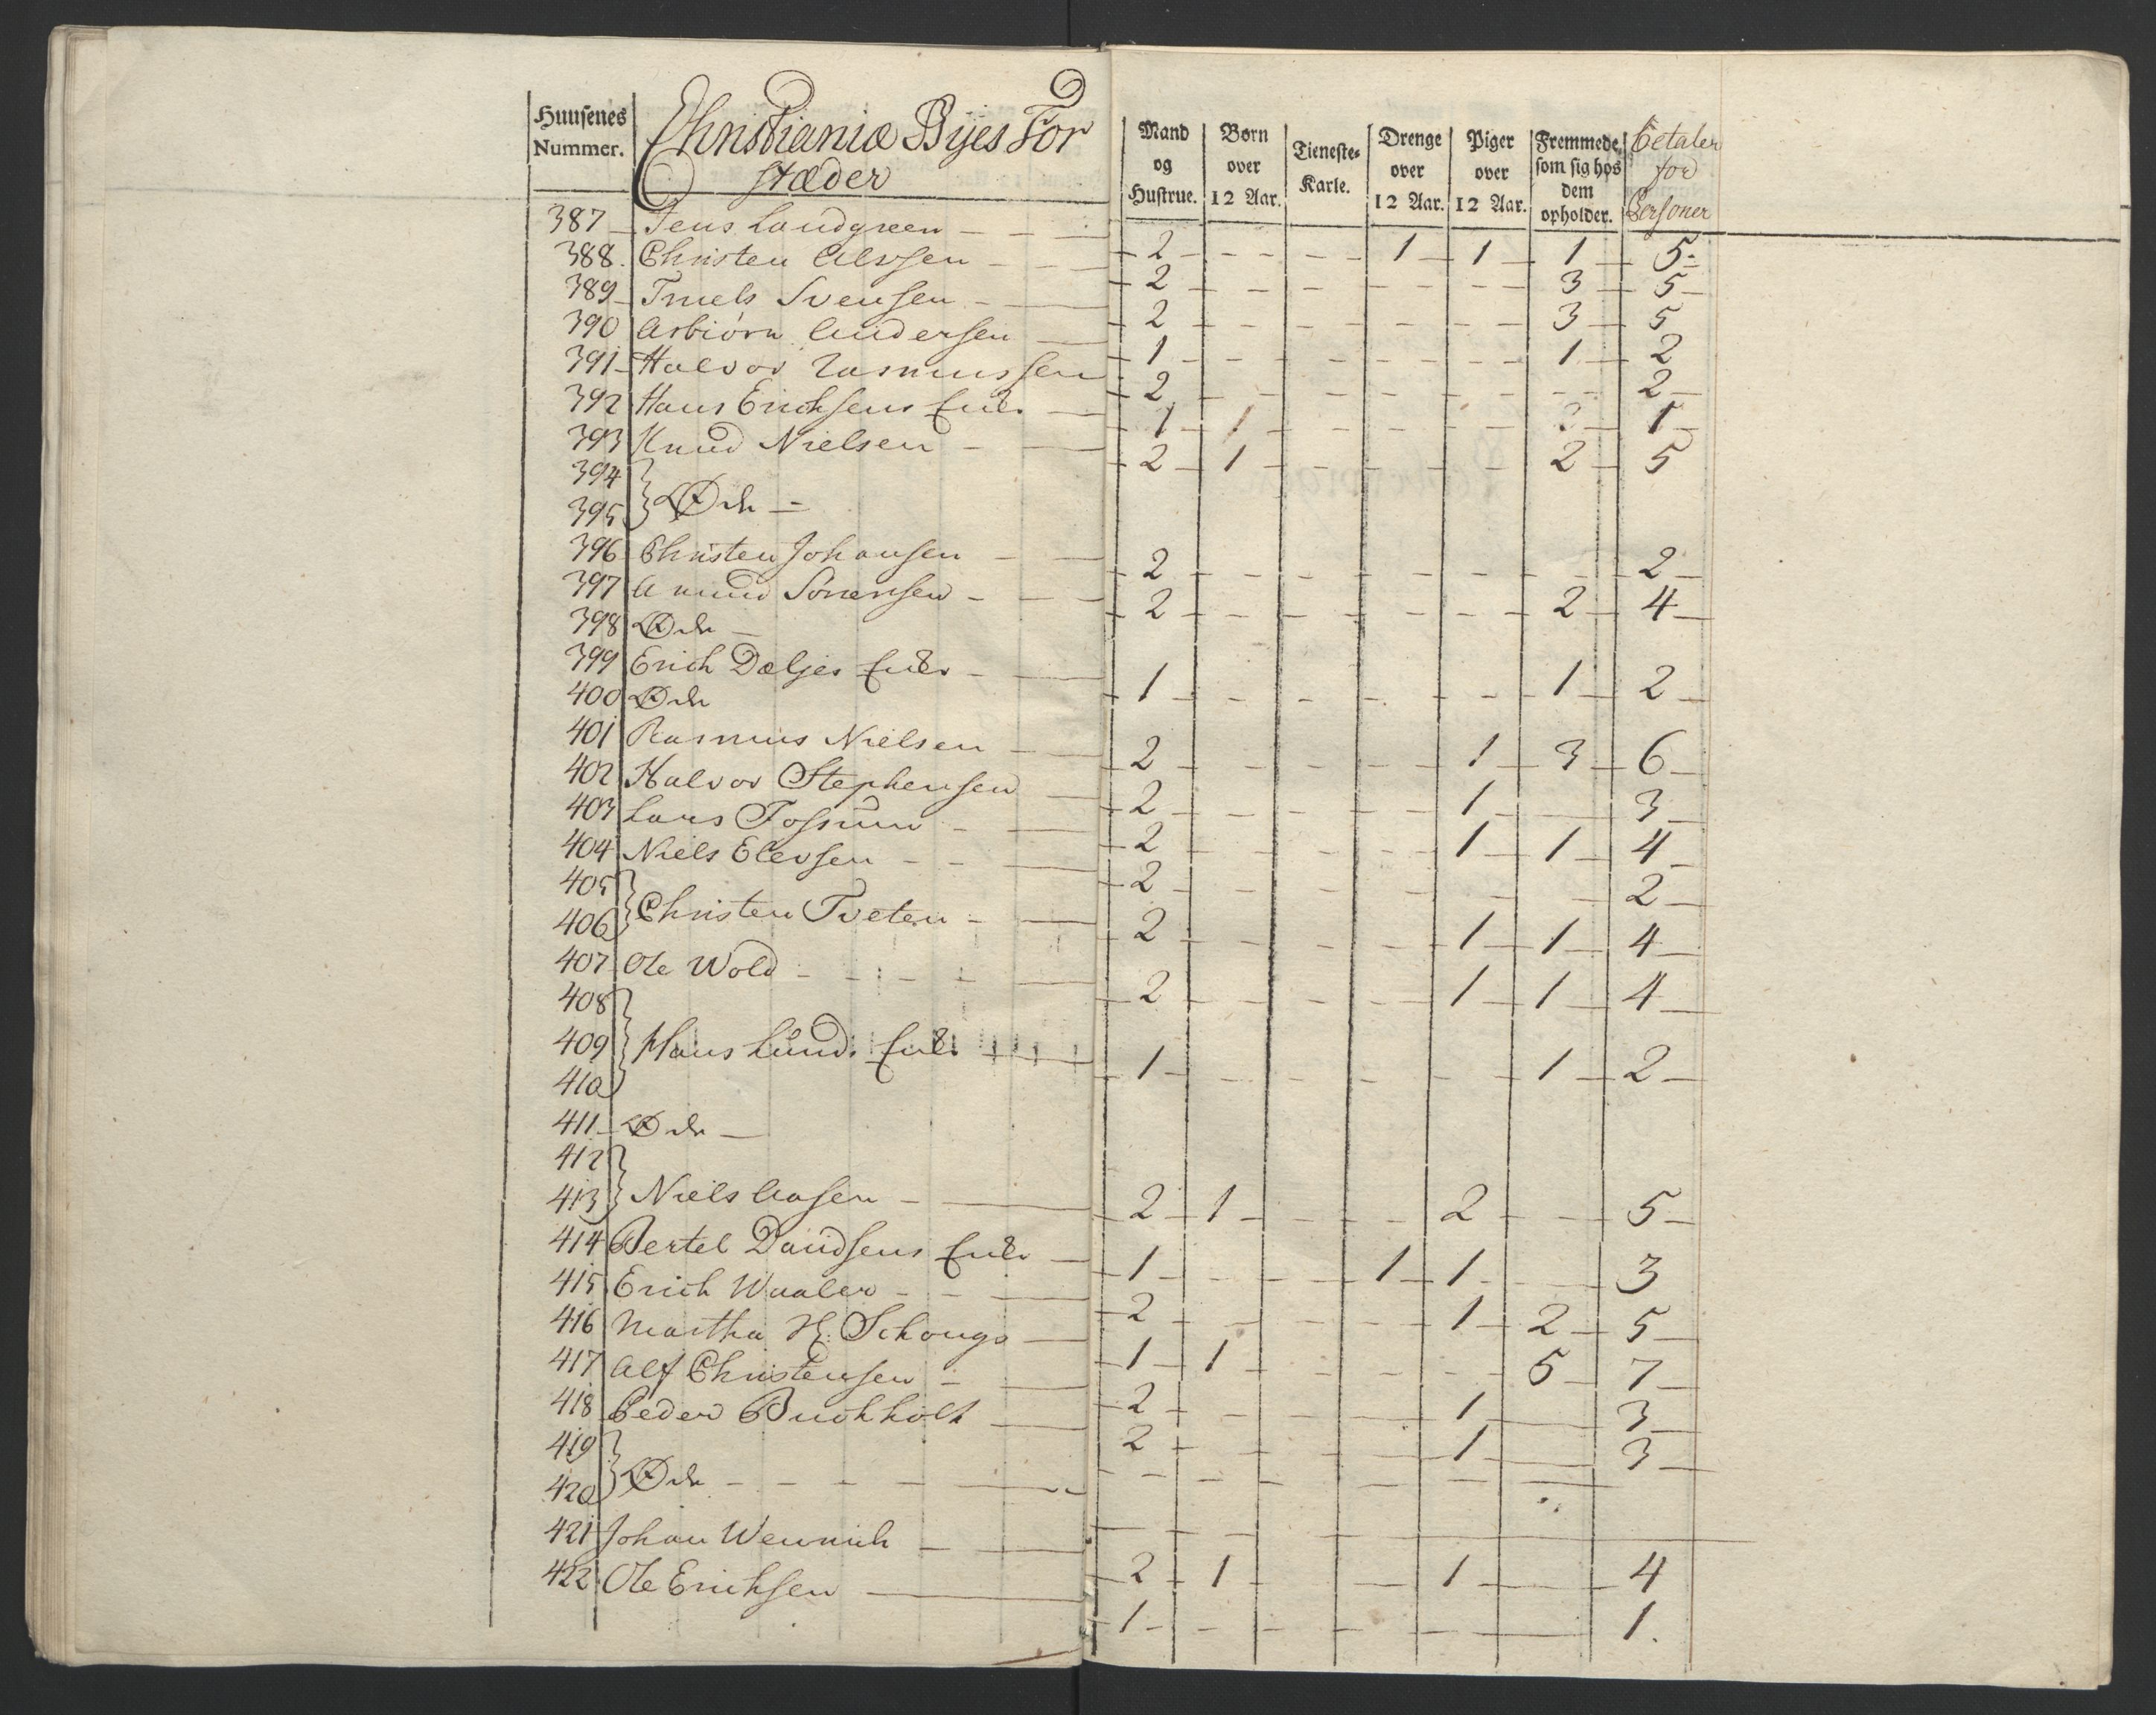 Huusenes Nummer. | Christianiæ Byes For stæder | Mand og Hustrue. | Børn over 12 Aar. | Tieneste-Karle. | Drenge over 12 Aar. | Piger over 12 Aar. | Fremmede, som sig hos dem opholder. | Betaler for Personer
387 Jens Landgreen 2 - - 1 1 1 5
388 Christen Alvsen 2 - - - - 3 5
389 Truels Svensen 2 - - - - 3 5
390 Asbiörn Andersen 1 - - - - 1 2
391 Halvor Rasmussen 2 - - - - - 2
392 Hans Erichsens Enke 1 1 - - - 1
393 Knud Nielsen 2 1 - - - 2 5
394
395 } Øde
396 Christen Johansen 2 - - - - - 2
397 Amund Sörensen 2 - - - - 2 4
398 Øde
399 Erich Dæljes Enke 1 - - - - 1 2
400 Øde
401 Rasmus Nielsen 2 - - - 1 3 6
402 Halvor Stephensen 2 - - - 1 - 3
403 Lars Fossum 2 - - - 1 1 4
404 Niels Elevsen 2 - - - - - 2
405
406 } Christen Tveten 2 - - - 1 1 4
407 Ole Wold 2 - - - 1 1 4
408
409 } Hans Lunds Enke 1 - - - - 1 2
410
411 Øde
412
413 } Niels Aasen 2 1 - - 2 - 5
414 Bertel Davidsens Enke 1 - - 1 1 - 3
415 Erich Waaler 2 - - - 1 2 5
416 Martha H. Schougs 1 1 - - - 5 7
417 Alf Christensen 2 - - - 1 - 3
418 Peder Buchholt 2 - - - 1 - 3
419
420 } Øde - - - - - -
421 Johan Wennich 2 1 - - 1 - 4
422 Ole Erichsen 1 - - - - - 1.